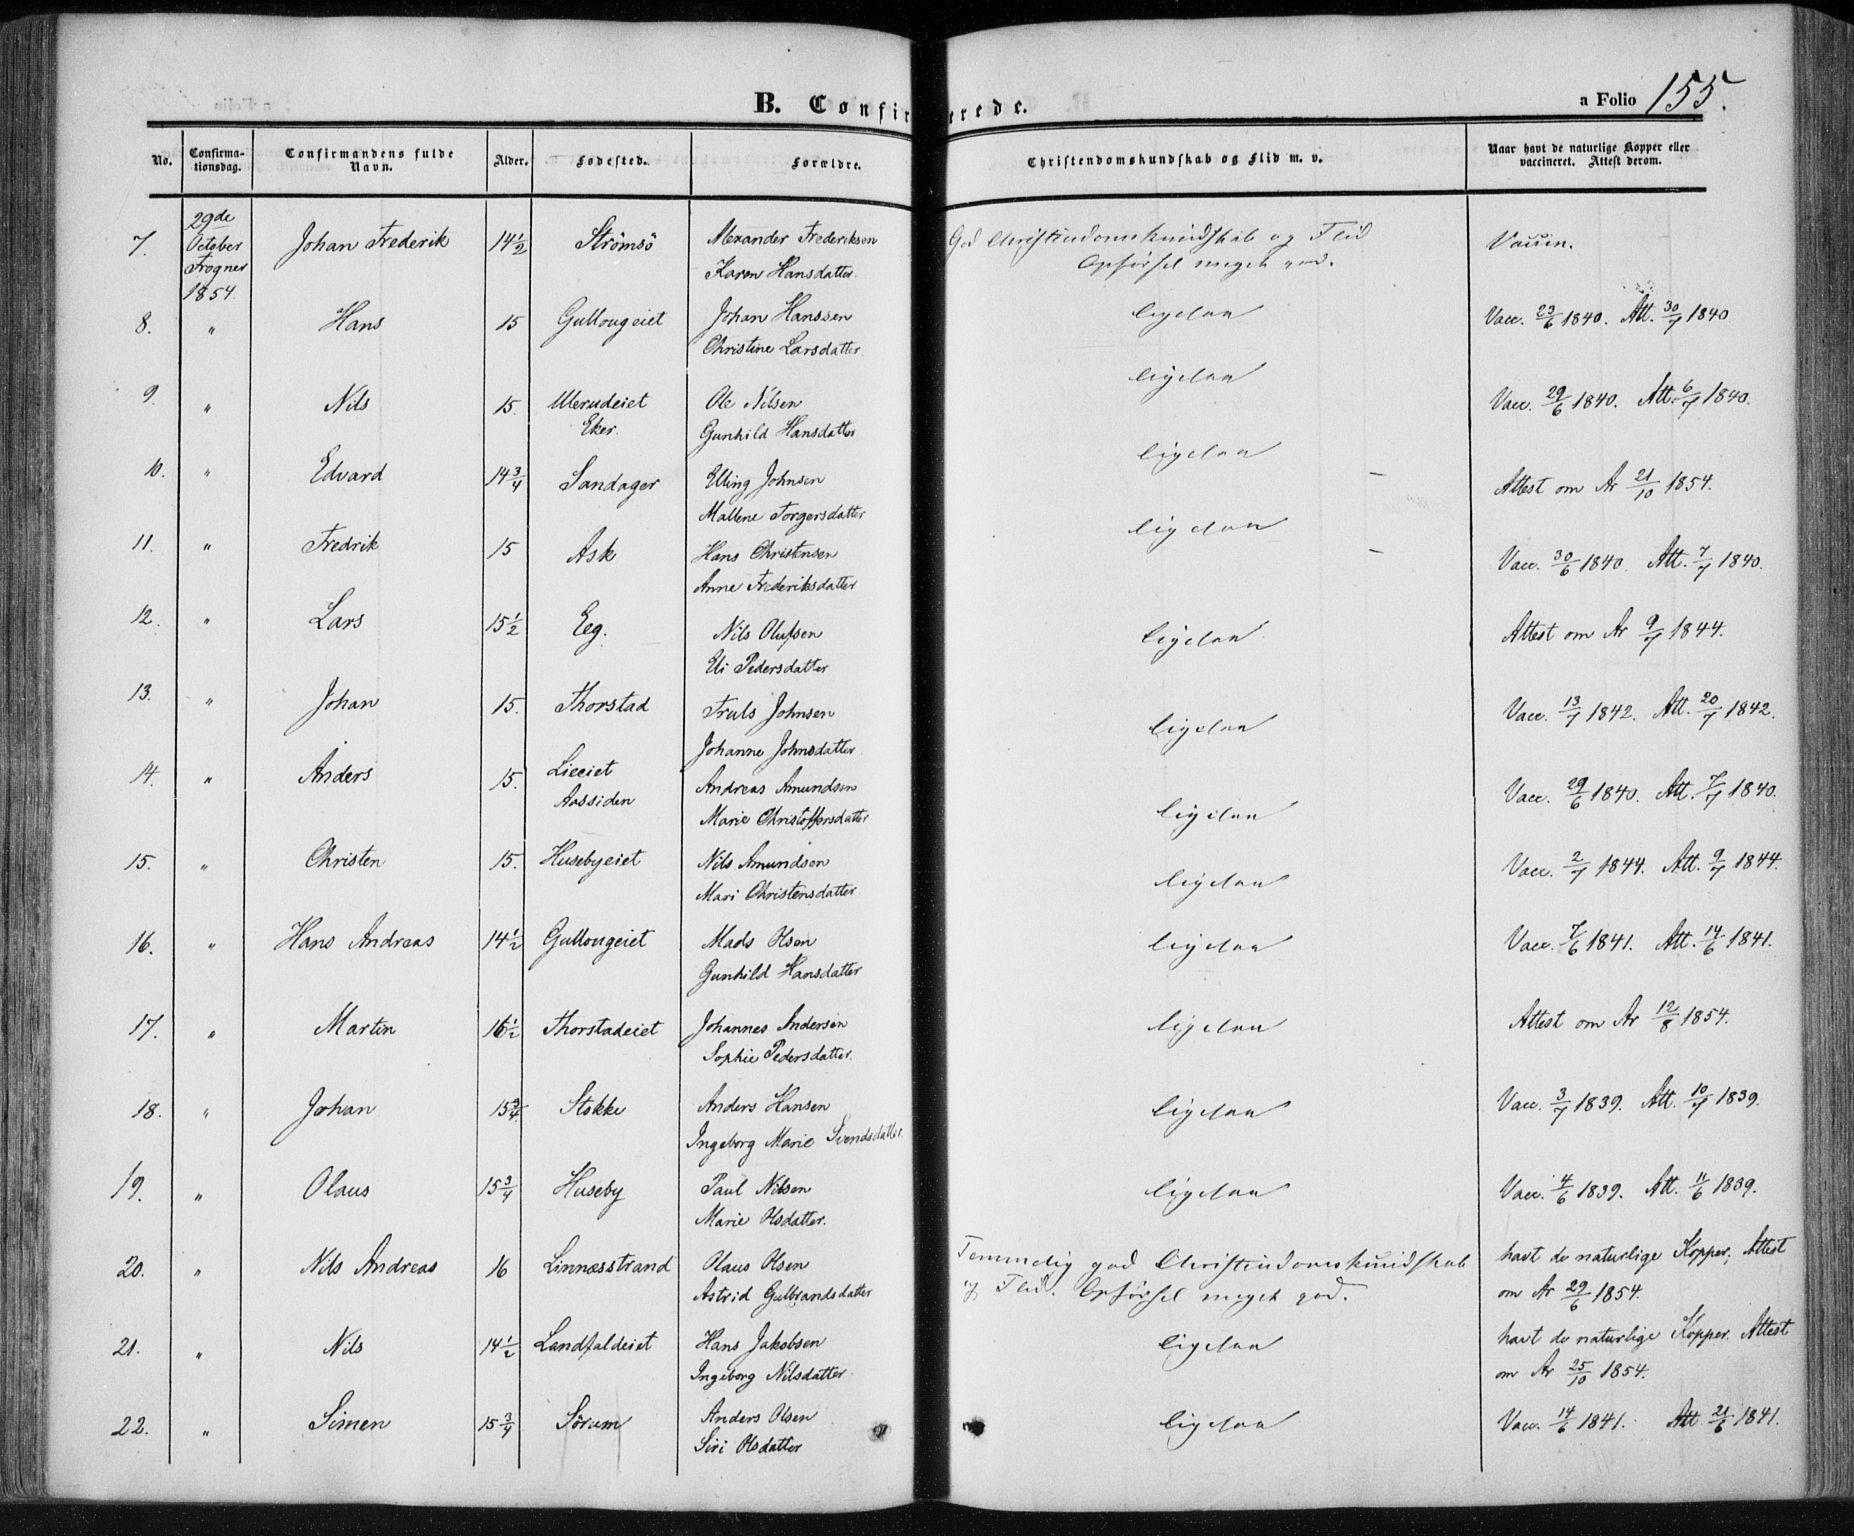 B. Confirmerede.
a Folio 155.
No. Confirma-tionsdag. Confirmandens fulde Navn. Alder. Fødested. Forældre. Christendomskundskab og Flid m. v. Naar havt de naturlige Kopper eller vaccineret. Attest derom.
7. 29de October Frogner 1854 Johan Frederik 14 1/2 Strömsö Alexander Frederiksen God Christendomskundskab og Flid Vaccin.
Karen Hansdatter Opförsel meget god.
8. " Hans 15 Gullougeiet Johan Hanssen ligesaa Vacc. 23/6 1840. Att. 30/7 1840
Christine Larsdatter
9. " Nils 15. Ulerudeiet Ole Nilsen ligesaa Vacc. 29/6 1840. Att. 6/7 1840.
Eker. Gunhild Hansdatter
10. " Edvard 14 3/4 Sandager Elling Johnsen ligesaa Attest om Ar 21/10 1854.
Mallene Torgersdatter
11. " Fredrik 15 Ask Hans Christensen ligesaa Vacc. 30/6 1840. Att. 7/7 1840.
Anne Frederiksdatter
12. " Lars 15 1/2 Eeg. Nils Olufsen ligesaa Attest om Ar 9/7 1844.
Eli Pedersdatter
13. " Johan 15. Thorstad Truls Johnsen ligesaa Vacc. 13/7 1842. Att. 20/7 1842.
Johanne Johnsdatter
14. " Anders 15. Lieeiet Andreas Amundsen ligesaa Vacc. 29/6 1840. Att. 7/7 1840.
Aassiden Marie Christoffersdatter
15. " Christen 15. Husebyeiet Nils Amundsen ligesaa Vacc. 2/7 1844. Att. 9/7 1844.
Mari Christensdatter
16. " Hans Andreas 14 1/2 Gullougeiet Mads Olsen ligesaa Vacc. 7/6 1841. Att. 14/6 1841.
Gunhild Hansdatter
17. " Martin 16 1/2 Thorstadeiet Johannes Andersen ligesaa Attest om Ar 12/8 1854.
Sophie Pedersdatter.
18. " Johan 15 3/4 Stokke Anders Hansen ligesaa Vacc. 3/7 1839. Att. 10/7 1839.
Ingeborg Marie Svendsdatter
19. " Olaus 15 3/4 Huseby Paul Nilsen ligesaa Vacc. 4/6 1839. Att. 11/6 1839.
Marie Olsdatter.
20. " Nils Andreas 16 Linnæsstrand Olaus Olsen Temmelig god Christendomskundskab havt de naturlige Kopper, Attest
Astrid Gulbrandsdatter og Flid. Opförsel meget god. om Ar 29/6 1854.
21. " Nils 14 1/2 Landfaldeiet Hans Jakobsen ligesaa havt de naturlige Kopper. Attest
Ingeborg Nilsdatter om Ar 25/10 1854.
22. " Simen 15 3/4 Sörum Anders Olsen ligesaa Vacc. 14/6 1841. Att 21/6 1841.
Siri Olsdatter